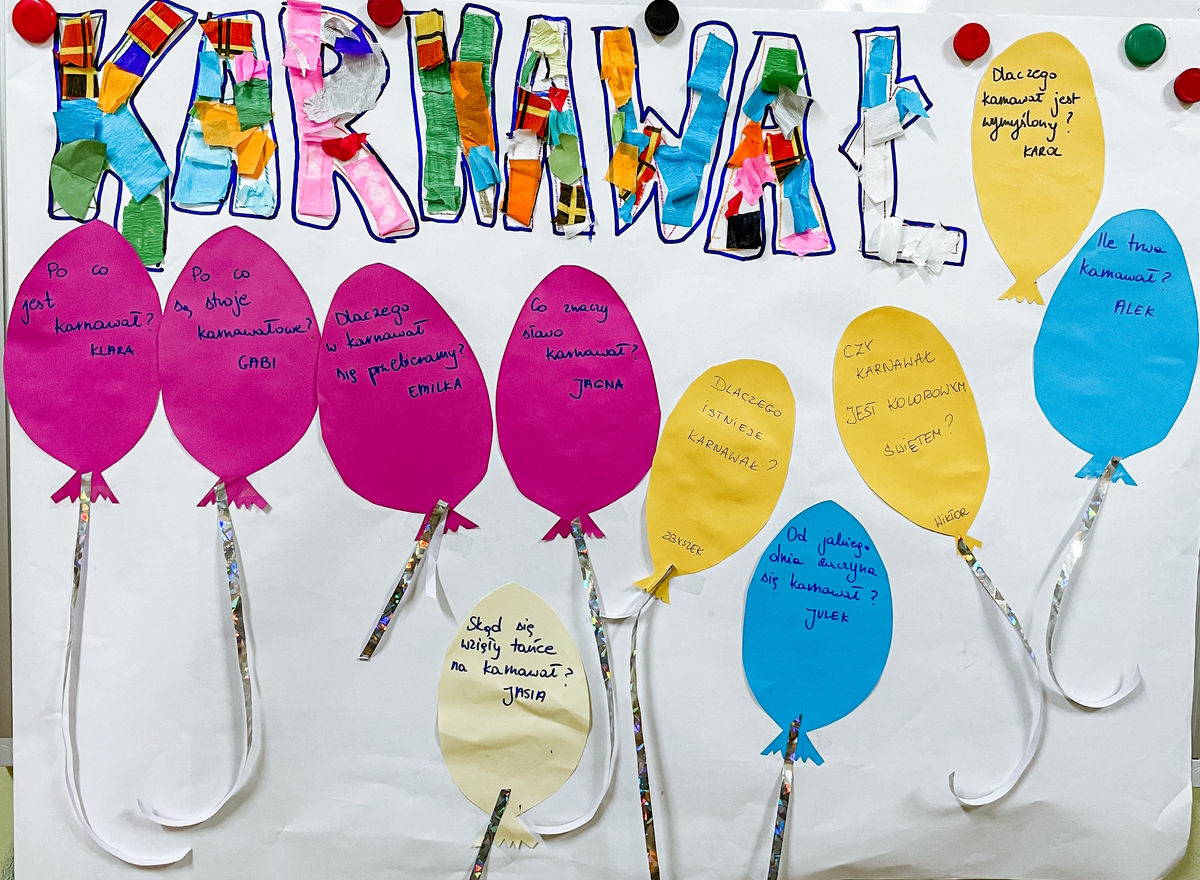 KARNAWAŁ
Dlaczego
karnawał jest
wymyślony?
KAROL
Ile trwa
karnawał?
ALEK
Po co
jest
karnawał?
KLARA
Po co
są stroje
karnawałowe?
GABI
Dlaczego
w karnawał
się przebieramy?
EMILKA
Co znaczy
słowo
karnawał?
JAGNA
DLACZEGO
ISTNIEJE
KARNAWAŁ?
ZBYSZEK
CZY
KARNAWAŁ
JEST KOLOROWYM
ŚWIĘTEM?
WIKTOR
Skąd się
wzięły tańce
na karnawał?
JASIA
Od jakiego
dnia zaczyna
się karnawał?
JULEK